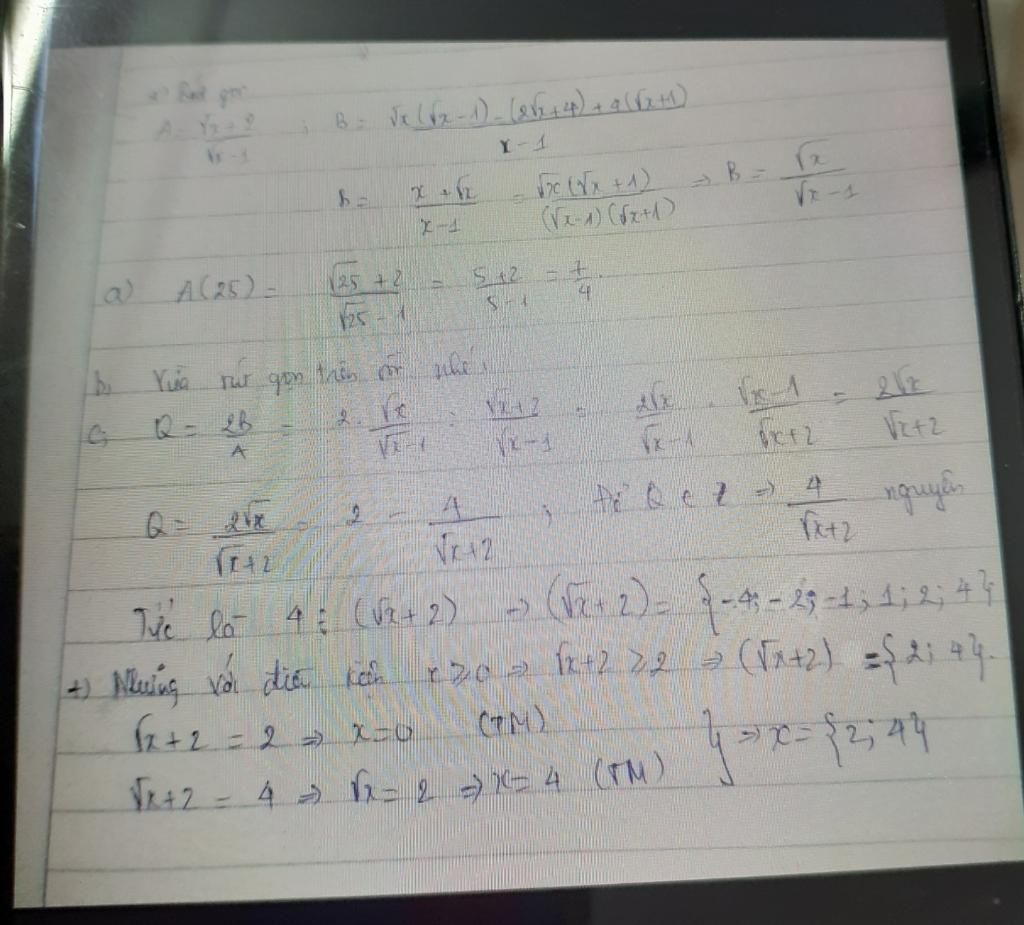 a) Rút gọn
A = (√x + 2)/(√x - 1) ; B = (√x(√x - 1) - (2√x + 4) + 4(√x + 1))/(x - 1)
B = (x + √x)/(x - 1) = (√x(√x + 1))/((√x - 1)(√x + 1)) ⇒ B = √x/(√x - 1)
a) A(25) = (√25 + 2)/(√25 - 1) = (5 + 2)/(5 - 1) = 7/4.
b, Vừa rút gọn trên rồi nhé,
c, Q = 2B/A = 2 . √x/(√x - 1) : (√x + 2)/(√x - 1) = 2√x/(√x - 1) . (√x - 1)/(√x + 2) = 2√x/(√x + 2)
Q = 2√x/(√x + 2) = 2 - 4/(√x + 2) ; Để Q ∈ Z ⇒ 4/(√x + 2) nguyên
Tức là 4 ⋮ (√x + 2) → (√x + 2) = {-4; -2; -1; 1; 2; 4};
+) Nhưng với điều kiện x ≥ 0 ⇒ √x + 2 ≥ 2 ⇒ (√x + 2) = {2; 4}.
√x + 2 = 2 ⇒ x = 0 (TM)
√x + 2 = 4 ⇒ √x = 2 ⇒ x = 4 (TM) } ⇒ x = {2; 4}